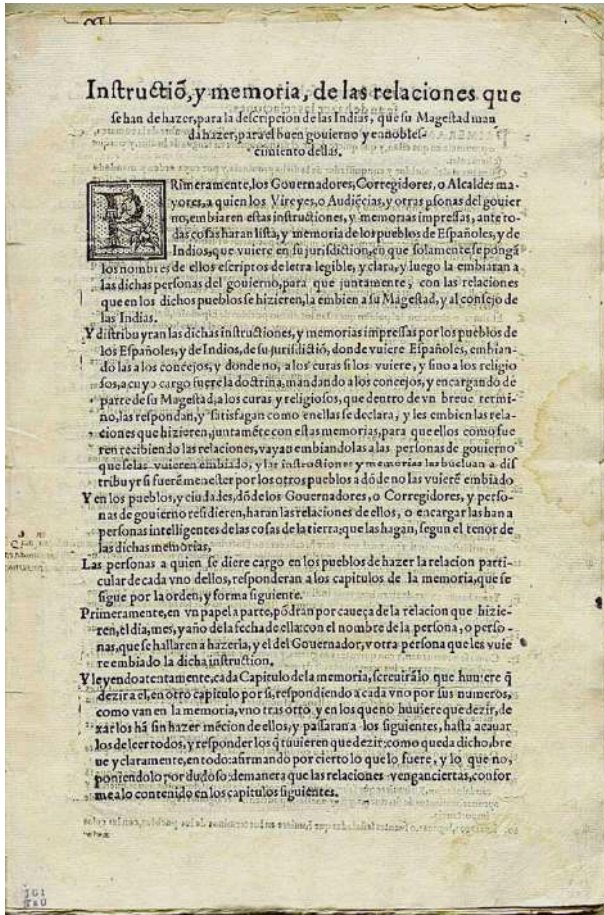 Instructiõ, y memoria, de las relaciones que
se han de hazer, para la descripcion de las Indias, que su Magestad man
da hazer, para el buen gouierno y ennobles-
cimiento dellas.
PRimeramente, los Gouernadores, Corregidores, o Alcaldes ma-
yores, a quien los Vireyes, o Audiẽcias, y otras psonas del gouier
no, embiaren estas instructiones, y memorias impressas, ante to-
das cosas haran lista, y memoria de los pueblos de Españoles, y de
Indios, que vuiere en su jurisdiction, en que solamente se pongã
los nombres de ellos escriptos de letra legible, y clara, y luego la embiaran a
las dichas personas del gouierno, para que juntamente, con las relaciones
que en los dichos pueblos se hizieren, la embien a su Magestad, y al consejo de
las Indias.
Y distribuyran las dichas instructiones, y memorias impressas por los pueblos de
los Españoles, y de Indios, de su jurisdictiõ, donde vuiere Españoles, embian-
do las a los concejos, y donde no, a los curas si los vuiere, y sino a los religio
sos, a cuyo cargo fuere la doctrina, mandando a los concejos, y encargando de
parte de su Magestad, a los curas y religiosos, que dentro de vn breue termi-
no, las respondan, y satisfagan como en ellas se declara, y les embien las rela-
ciones que hizieren, juntamẽte con estas memorias, para que ellos como fue
ren recibiendo las relaciones, vayan embiandolas a las personas de gouierno
que se las vuieren embiado, y las instructiones y memorias las bueluan a dis
tribuyr si fuerẽ menester por los otros pueblos a dõde no las vuierẽ embiado
Y en los pueblos, y ciudades, dõde los Gouernadores, o Corregidores, y perso-
nas de gouierno residieren, haran las relaciones de ellos, o encargar las han a
personas intelligentes de las cosas de la tierra; que las hagan, segun el tenor de
las dichas memorias,
Las personas a quien se diere cargo en los pueblos de hazer la relacion parti-
cular de cada vno dellos, responderan a los capitulos de la memoria, que se
sigue por la orden, y forma siguiente.
Primeramente, en vn papel a parte, põdran por caueça de la relacion que hizie-
ren, el dia, mes, y año de la fecha de ella: con el nombre de la persona, o perso-
nas, que se hallaren a hazerla, y el del Gouernador, v otra persona que les vuie
re embiado la dicha instruction.
Y leyendo atentamente, cada Capitulo de la memoria, screuirã lo que huuiere q̃
dezir a el, en otro capitulo por si, respondiendo a cada vno por sus numeros,
como van en la memoria, vno tras otro, y en los que no huuiere que dezir, de
xar los hã sin hazer mẽcion de ellos, y passaran a los siguientes, hasta acauar
los de leer todos, y responder los q̃ tuuieren que dezir: como queda dicho, bre
ue y claramente, en todo: afirmando por cierto lo que lo fuere, y lo que no,
poniendolo por dudoso: demanera que las relaciones vengan ciertas, confor
me a lo contenido en los capitulos siguientes.